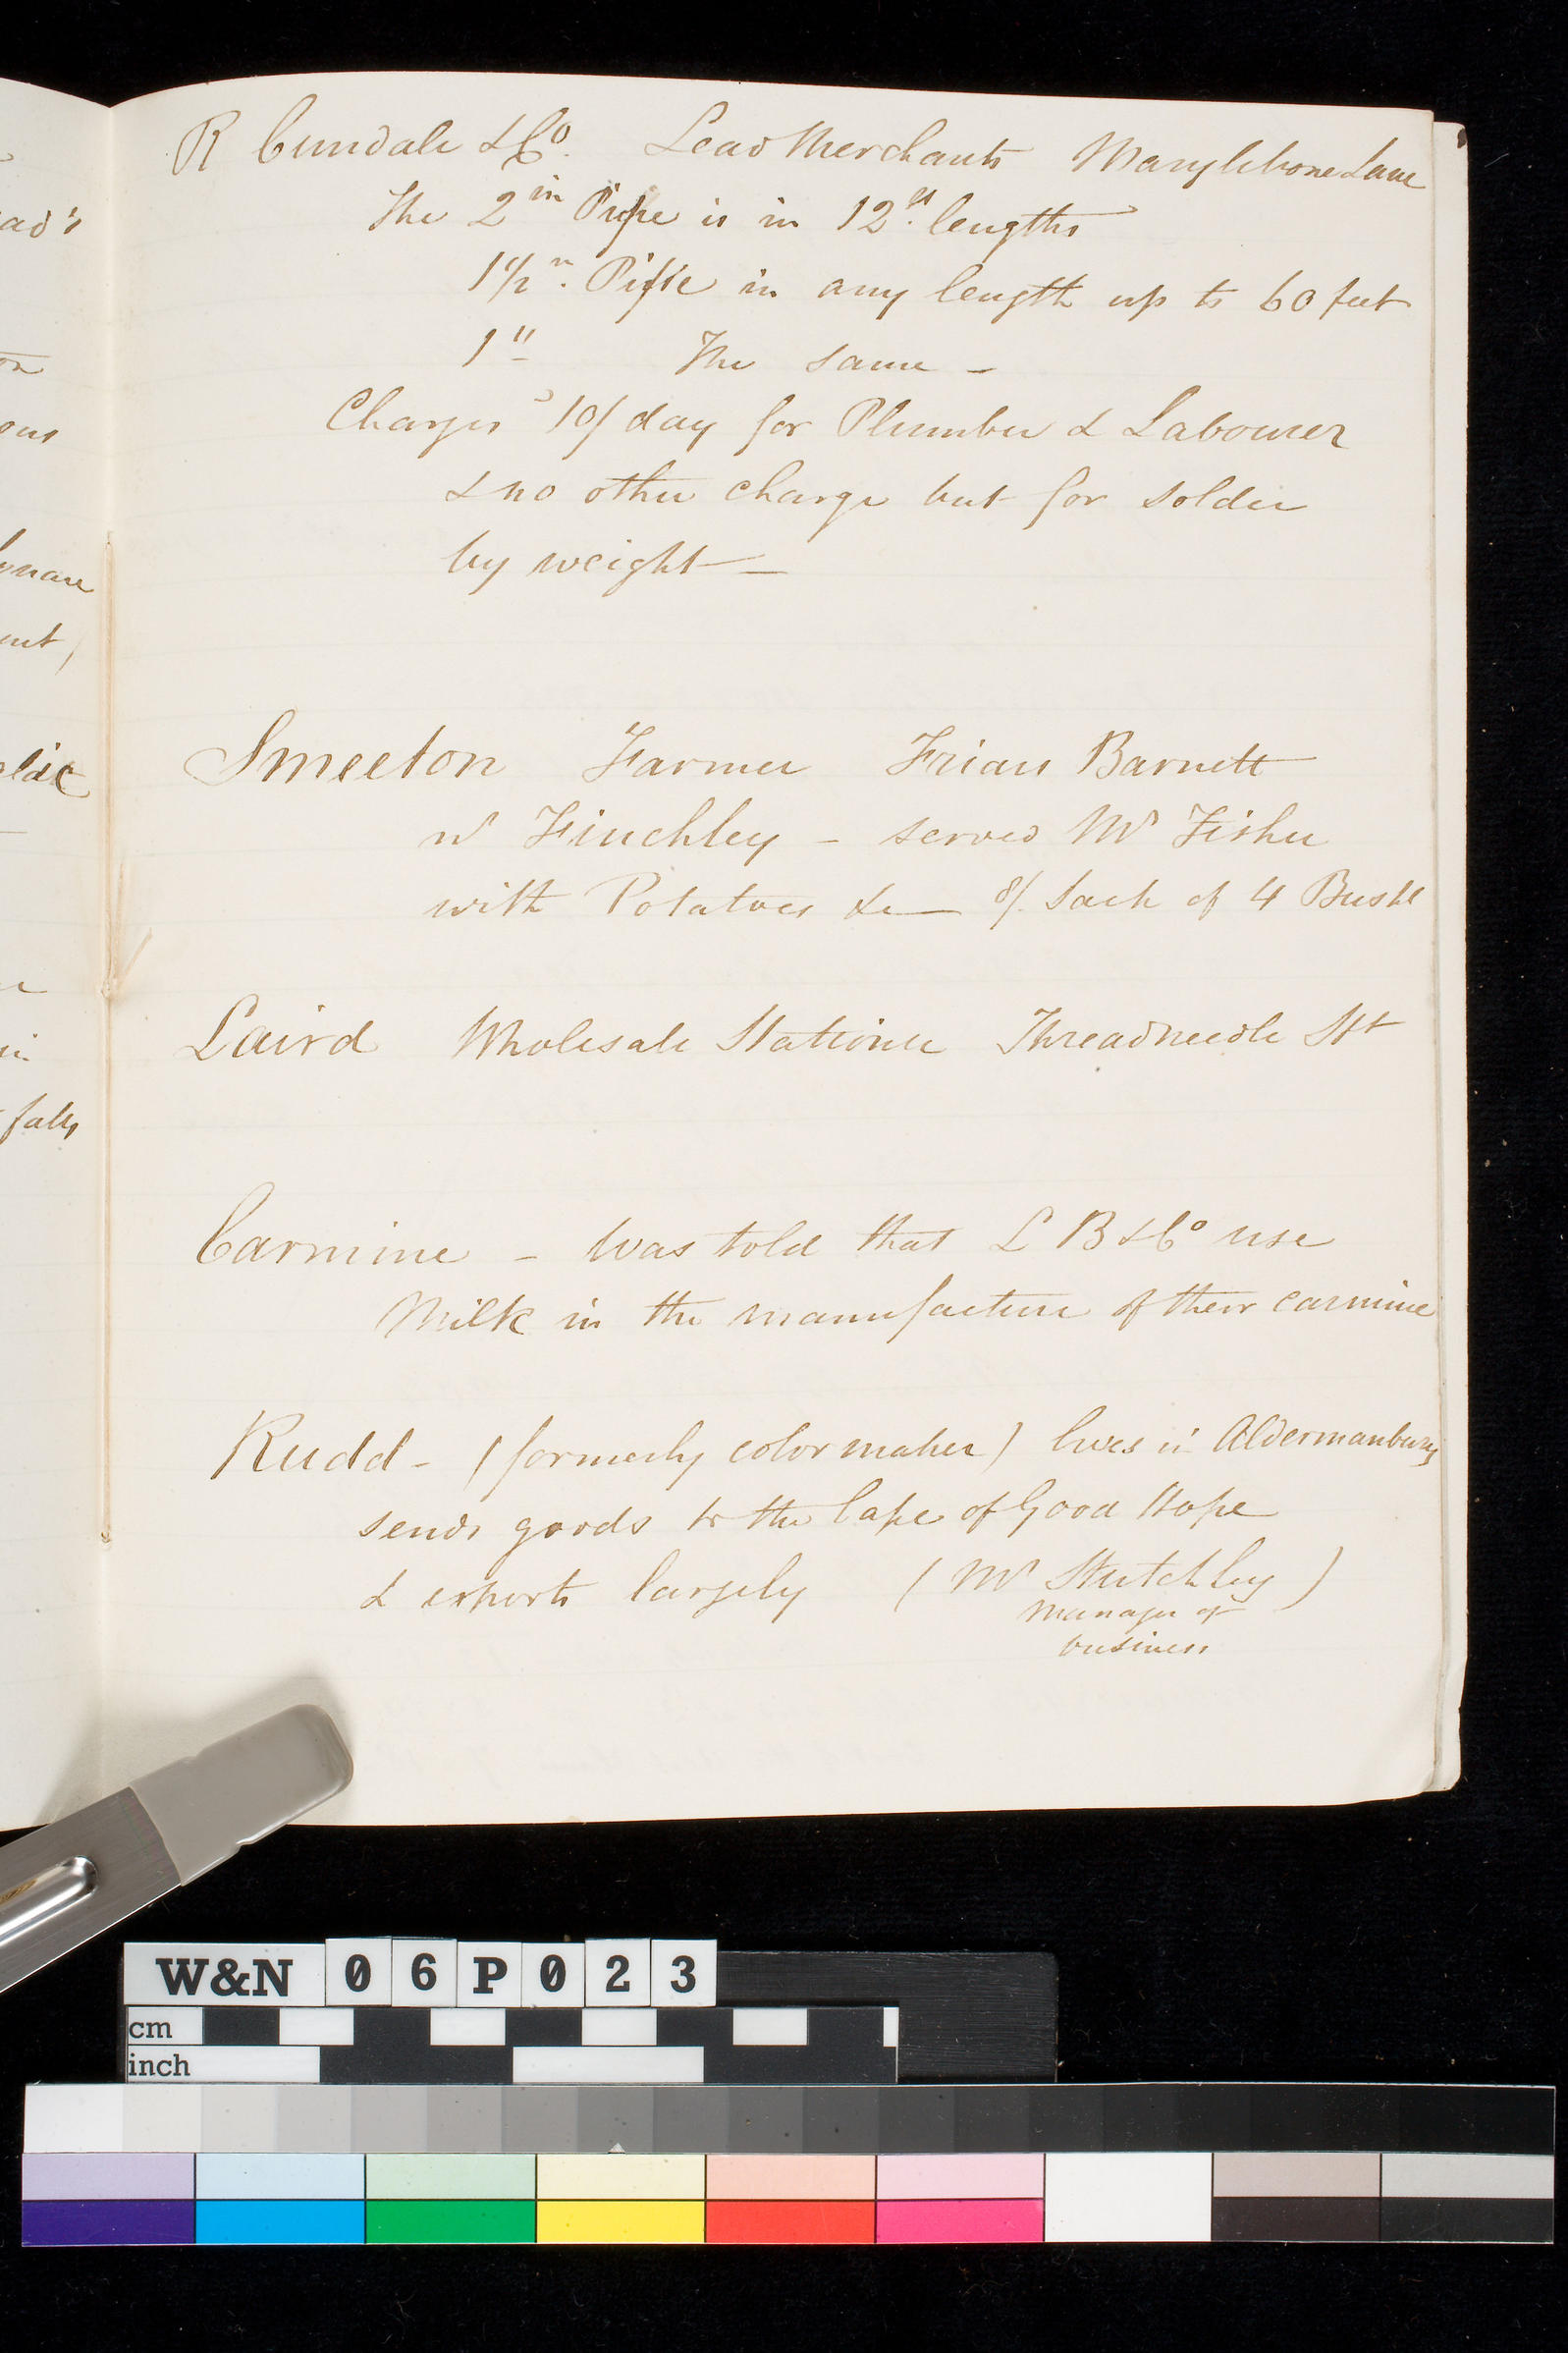 R Cundale & Co. Lead Merchants Marylebone Lane
The 2 in Pipe is in 12 ft. lengths
1 1/2 in. Pipe in any length up to 60 feet
1" The same -
Charges 10/ day for Plumber & Labourer
& no other charge but for solder
by weight -
Smeeton Farmer Friars Barnett
nr Finchley - served Mr Fisher
with Potatoes &c - 8/. Sack of 4 Bushl
Laird Wholesale Stationer Threadneedle Stt
Carmine - Was told that L B & Co use
Milk in the manufacture of their carmine
Rudd - (formerly color maker) lives in Aldermanbury
sends goods to the Cape of Good Hope
& exports largely (Mr Stutchley)
manager of
business
ad's
ous
ent,
in
falls
W&N 06P023
cm
inch